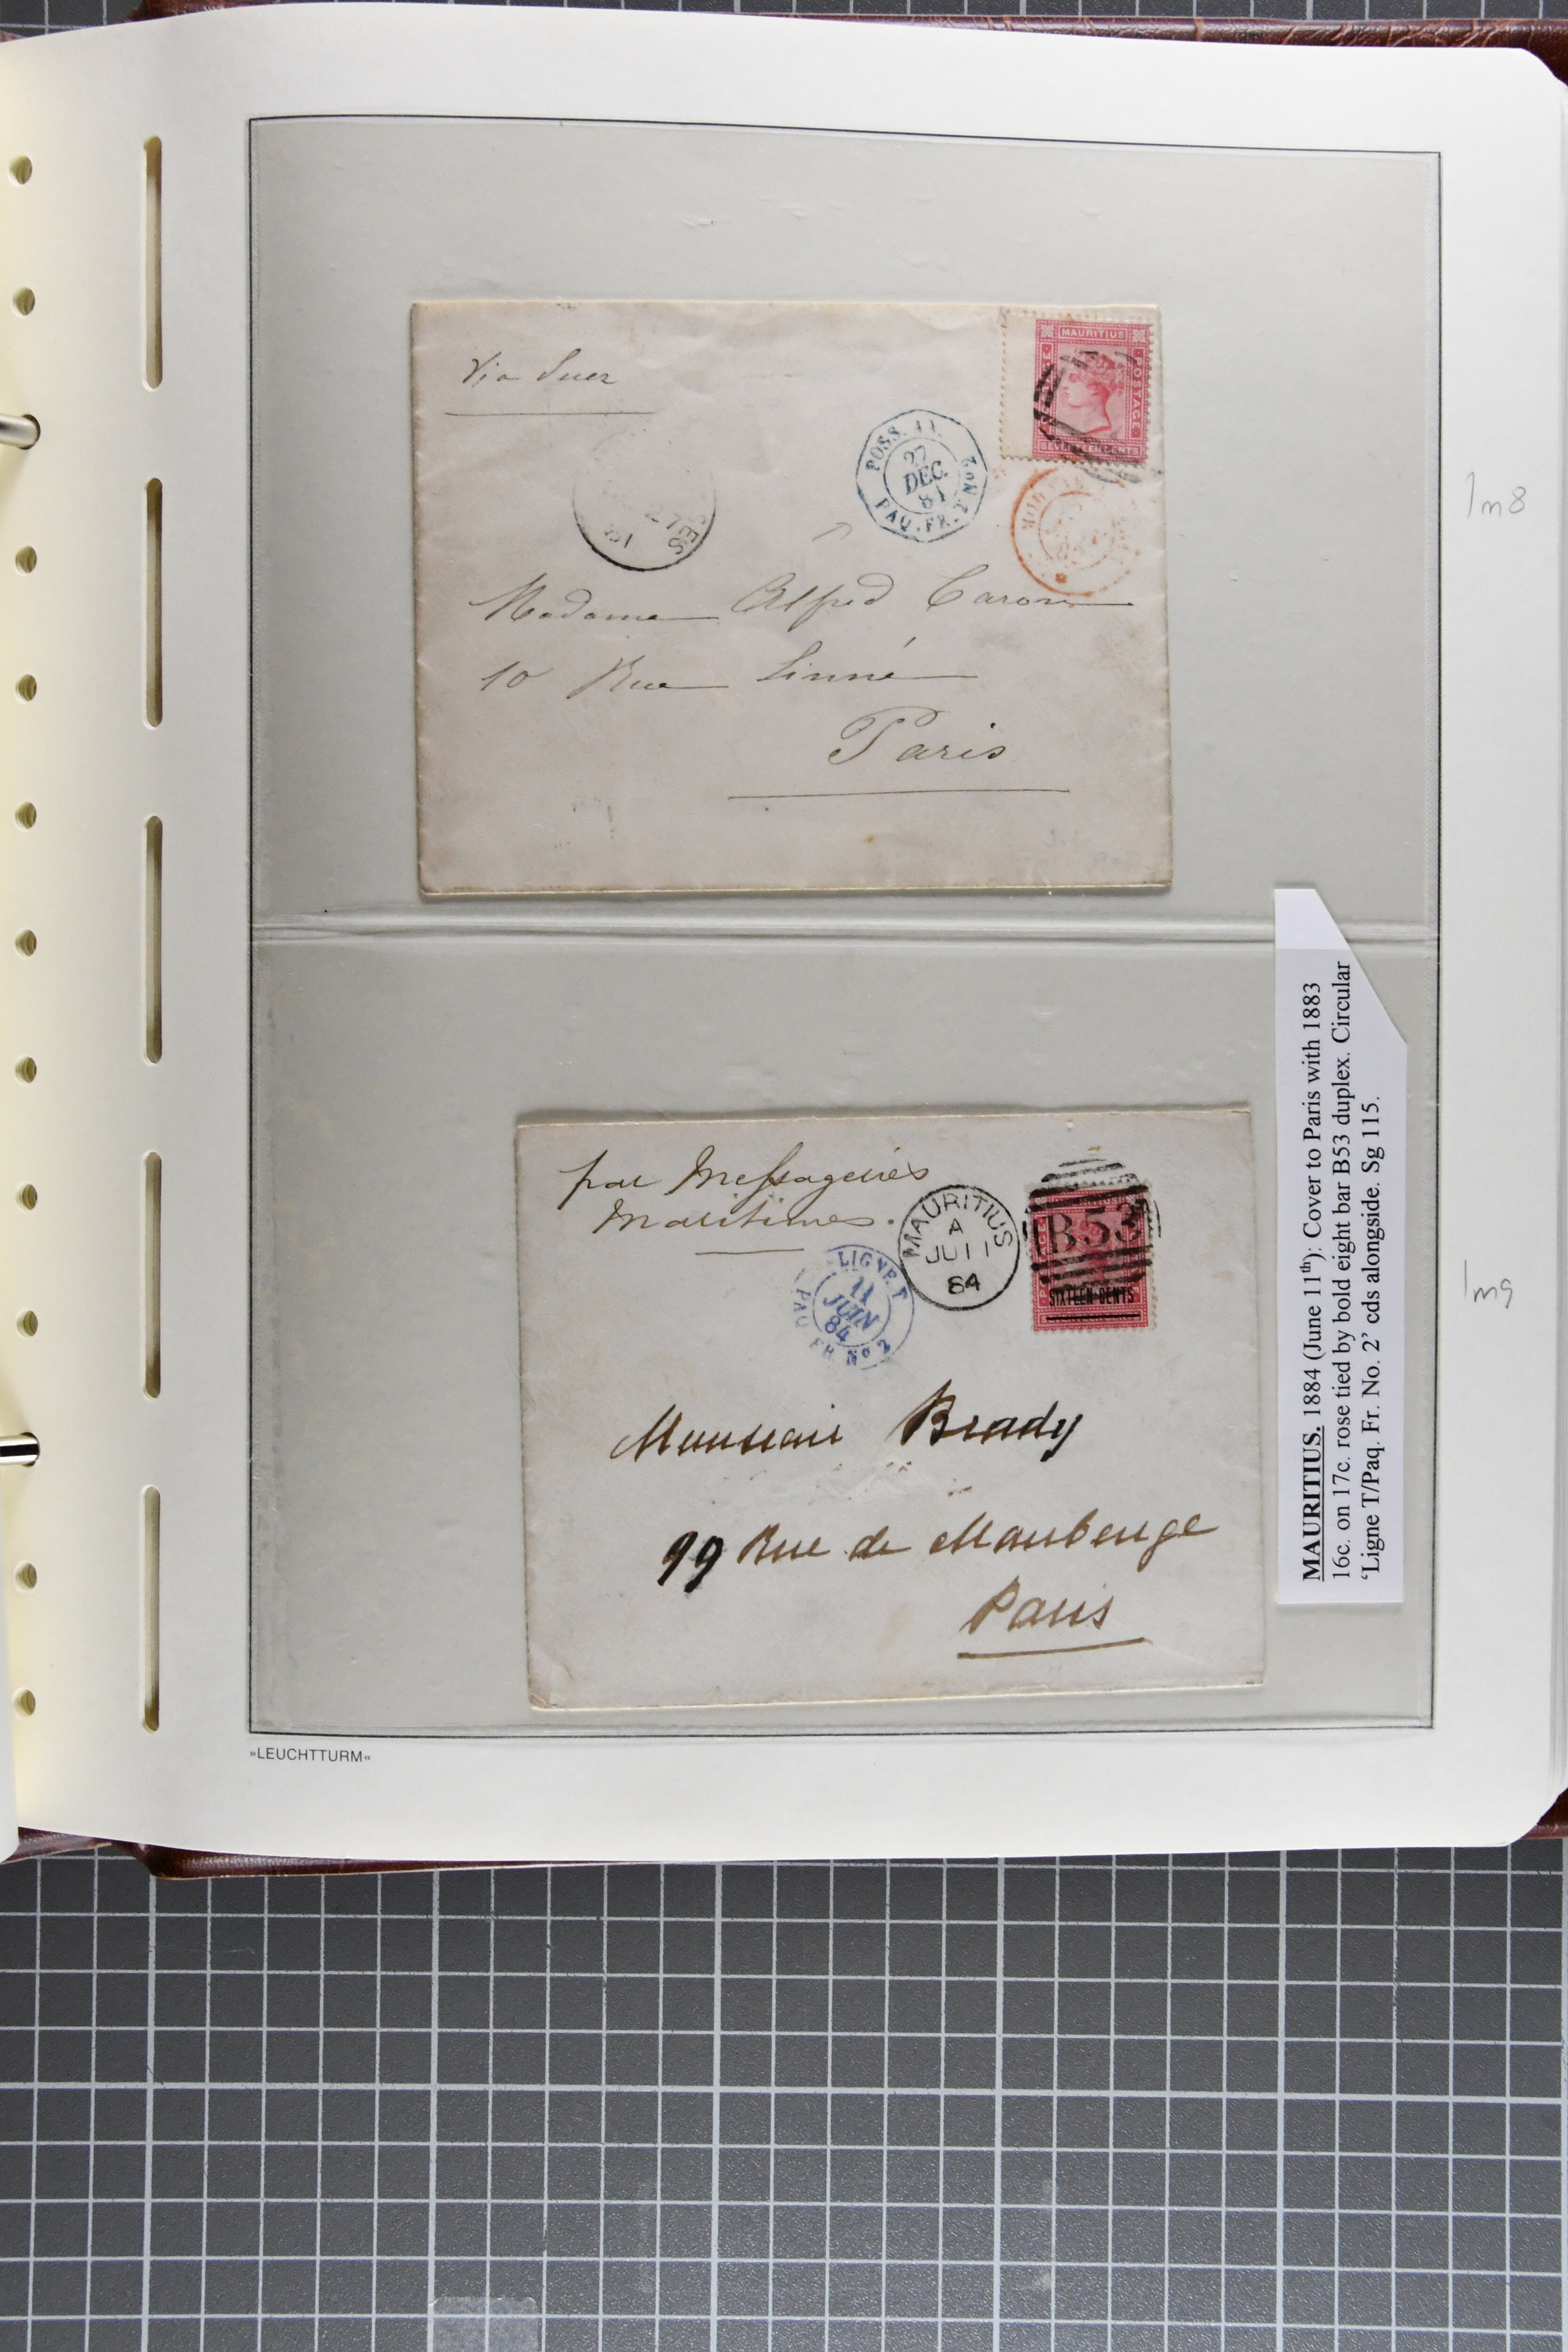 Via Suez
MAURITIUS
POSTAGE
SEVENTEEN CENTS
POSS. AN.
27
DEC.
81
PAQ. FR. T Nº 2
Madame Alfred Caron
10 Rue Linné
Paris
1m8
par Messageries
Maritimes.
MAURITIUS
A
JU 11
84
B53
SIXTEEN CENTS
LIGNE T
11
JUIN
84
PAQ FR Nº 2
Monsieur Brady
99 Rue de Maubeuge
Paris
1m9
MAURITIUS. 1884 (June 11th): Cover to Paris with 1883
16c. on 17c. rose tied by bold eight bar B53 duplex. Circular
‘Ligne T/Paq. Fr. No. 2’ cds alongside. Sg 115.
»LEUCHTTURM«